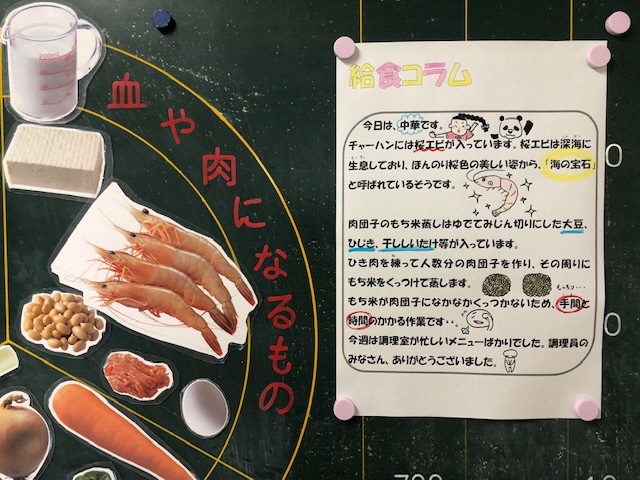 血や肉になるもの
給食コラム
今日は、中華です。
チャーハンには桜エビが入っています。桜エビは深海に
生息しており、ほんのり桜色の美しい姿から、「海の宝石」
と呼ばれているそうです。
肉団子のもち米蒸しはゆでてみじん切りにした大豆、
ひじき、干ししいたけ等が入っています。
ひき肉を練って人数分の肉団子を作り、その周りに
もち米をくっつけて蒸します。
もち米が肉団子になかなかくっつかないため、手間と
時間のかかる作業です・・。
今週は調理室が忙しいメニューばかりでした。調理員の
みなさん、ありがとうございました。